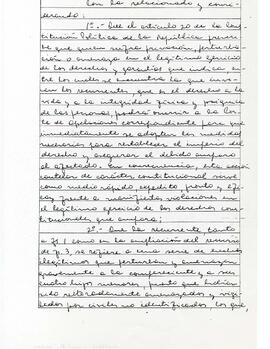 Con lo relacionado y consi-
derando:
1º.- Que el artículo 20 de la Cons-
titución Política de la República previe-
ne que quien sufra privación, perturba-
ción o amenaza en el legítimo ejercicio
de los derechos y garantías que indica, en-
tre los cuales se encuentra la que invo-
can los recurrentes, que es el derecho a la
vida y a la integridad física y psíquica
de las personas, podrá ocurrir a la Cor-
te de Apelaciones correspondiente para que
inmediatamente se adopten las medidas
necesarias para restablecer el imperio del
derecho y asegurar el debido amparo
al afectado. En consecuencia, esta acción
cautelar de carácter constitucional sirve
como medio rápido, expedito, pronto y efi-
caz frente a manifiestas violaciones en
el legítimo ejercicio de los derechos cons-
titucionales que ampara;
2º.- Que la recurrente tanto
a fs. 1 como en la ampliación del recurso
de fs. 3, se refiere a una serie de hechos
ilegítimos que perturban y amenazan
gravemente a la compareciente y a sus
cuatro hijos menores, puesto que habrían
sido reiteradamente amenazados y vigi-
lados por civiles no identificados, los que,